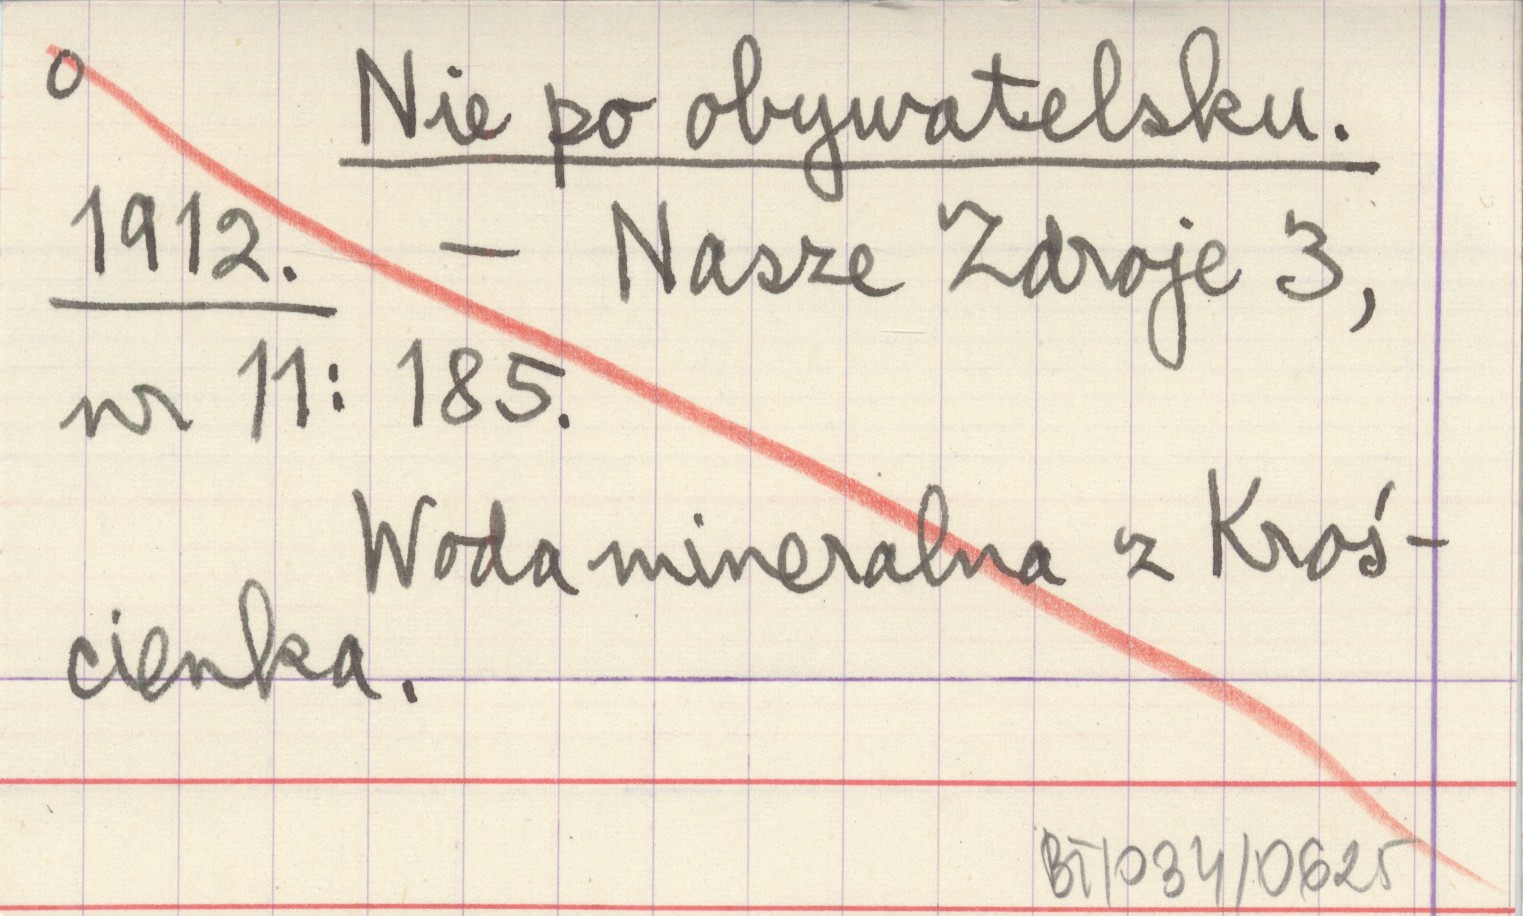 o Nie po obywatelsku.
1912. – Nasze Zdroje 3,
nr 11: 185.
Woda mineralna z Kroś-
cienka.
BT/034/0625